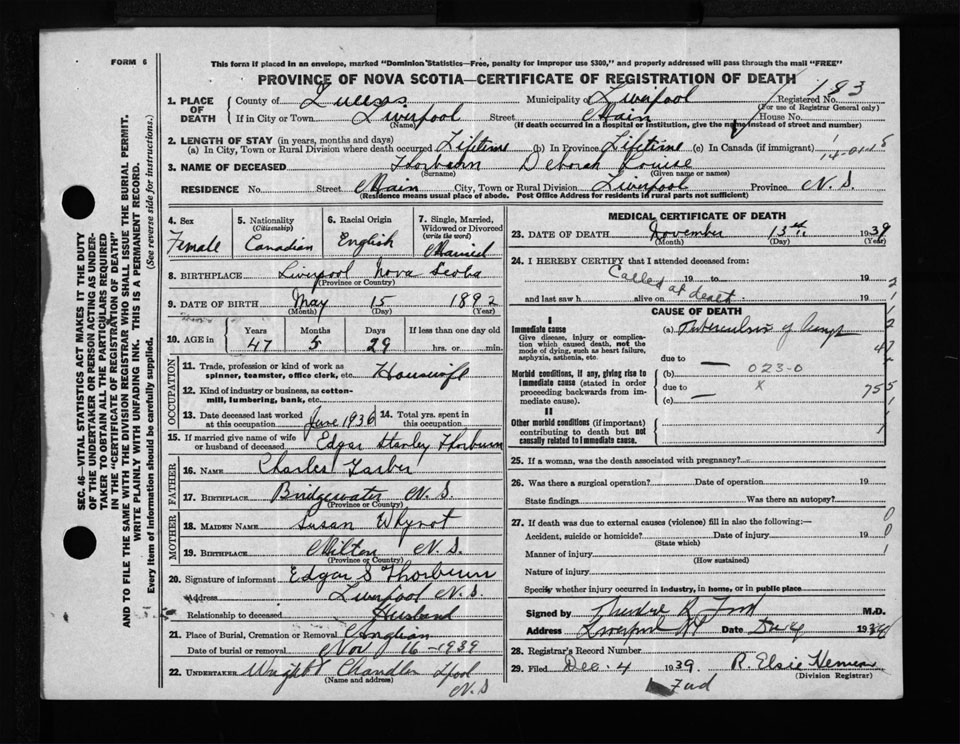 FORM 6
This form if placed in an envelope, marked "Dominion Statistics—Free, penalty for improper use $300," and properly addressed will pass through the mail "FREE"
PROVINCE OF NOVA SCOTIA—CERTIFICATE OF REGISTRATION OF DEATH
183
1. PLACE OF DEATH County of Queens Municipality of Liverpool Registered No.
(For use of Registrar General only)
If in City or Town Liverpool Street Main House No.
(Name) (If death occurred in a hospital or institution, give the name instead of street and number)
2. LENGTH OF STAY (in years, months and days)
(a) In City, Town or Rural Division where death occurred Lifetime (b) In Province Lifetime (c) In Canada (if immigrant)
3. NAME OF DECEASED Thorburn Deborah Louise
(Surname) (Given name or names)
RESIDENCE No. Street Main City, Town or Rural Division Liverpool Province N. S.
(Residence means usual place of abode. Post Office Address for residents in rural parts not sufficient)
4. Sex Female
5. Nationality (Citizenship) Canadian
6. Racial Origin English
7. Single, Married, Widowed or Divorced (write the word) Married
8. BIRTHPLACE Liverpool Nova Scotia
(Province or Country)
9. DATE OF BIRTH May 15 1892
(Month) (Day) (Year)
10. AGE in Years Months Days If less than one day old
47 5 29 hrs. or min.
OCCUPATION
11. Trade, profession or kind of work as spinner, teamster, office clerk, etc. Housewife
12. Kind of industry or business, as cotton-mill, lumbering, bank, etc.
13. Date deceased last worked at this occupation June 1936 14. Total yrs. spent in this occupation
15. If married give name of wife or husband of deceased Edgar Stanley Thorburn
FATHER
16. NAME Charles Tarber
17. BIRTHPLACE Bridgewater N. S.
(Province or Country)
MOTHER
18. MAIDEN NAME Susan Whynot
19. BIRTHPLACE Milton N. S.
(Province or Country)
20. Signature of informant Edgar S Thorburn
Address Liverpool N. S.
Relationship to deceased Husband
21. Place of Burial, Cremation or Removal
Date of burial or removal Nov 16 - 1939
22. UNDERTAKER Wright Chandler Lpool
(Name and address) N. S
MEDICAL CERTIFICATE OF DEATH
23. DATE OF DEATH November 13th 1939
(Month) (Day) (Year)
24. I HEREBY CERTIFY that I attended deceased from:
Called 19 to 19
and last saw h alive on at death. 19
CAUSE OF DEATH
I
Immediate cause (a) Tuberculosis of
Give disease, injury or complication which caused death, not the mode of dying, such as heart failure, asphyxia, asthenia, etc.
due to —
Morbid conditions, if any, giving rise to immediate cause (stated in order proceeding backwards from immediate cause).
(b) 023-0
due to x
(c) —
II
Other morbid conditions (if important) contributing to death but not causally related to immediate cause.
25. If a woman, was the death associated with pregnancy?
26. Was there a surgical operation? Date of operation 19
State findings Was there an autopsy?
27. If death was due to external causes (violence) fill in also the following:—
Accident, suicide or homicide? Date of injury 19
(State which)
Manner of injury
(How sustained)
Nature of injury
Specify whether injury occurred in industry, in home, or in public place
Signed by Theodore R Ford M.D.
Address Liverpool NS Date Dec 4 1939
28. Registrar's Record Number
29. Filed Dec. 4 1939. R. Elsie
(Division Registrar)
SEC. 46—VITAL STATISTICS ACT MAKES IT THE DUTY
OF THE UNDERTAKER OR PERSON ACTING AS UNDER-
TAKER TO OBTAIN ALL THE PARTICULARS REQUIRED
IN THE "CERTIFICATE OF REGISTRATION OF DEATH"
AND TO FILE THE SAME WITH THE DIVISION REGISTRAR WHO SHALL ISSUE THE BURIAL PERMIT.
WRITE PLAINLY WITH UNFADING INK. THIS IS A PERMANENT RECORD.
Every item of information should be carefully supplied. (See reverse side for instructions.)